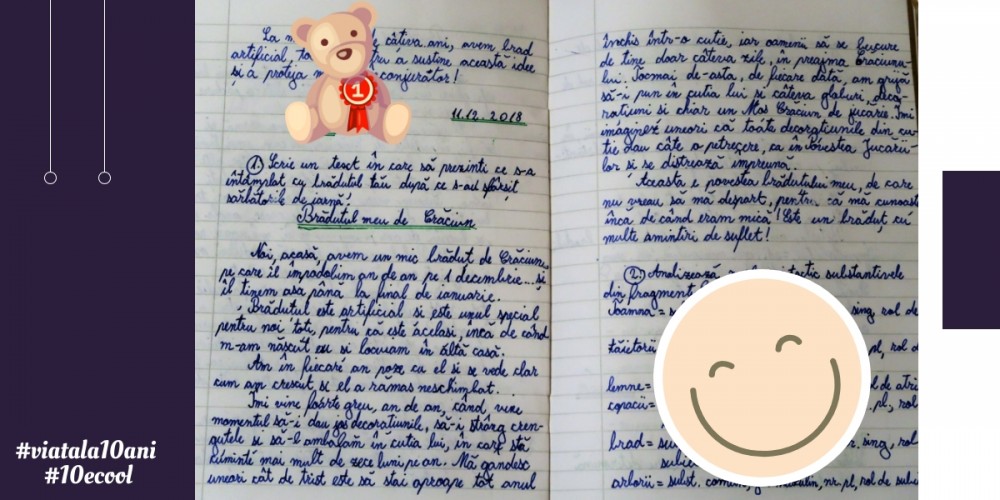 La
câtiva ani, avem brad
artificial,
a sustine această idee
și a proteja
conjurător!
1
11.12.2018
1. Scrie un text în care să prezinti ce s-a
întâmplat cu brădutul tău după ce s-au sfârșit
sărbătorile de iarnă.
Brădutul meu de Crăciun
Noi, acasă, avem un mic brădut de Crăciun,
pe care îl împodobim an de an pe 1 decembrie... și
îl tinem asa până la final de ianuarie.
Brădutul este artificial si este unul special
pentru noi toti, pentru că este acelasi, încă de când
m-am născut eu si locuiam în altă casă.
Am în fiecare an poze cu el si se vede clar
cum am crescut, si el a rămas neschimbat.
Îmi vine foarte greu, an de an, când vine
momentul să-i dau jos decoratiunile, să-i strâng cren-
gutele si să-l ambalăm în cutia lui, în care stă
cuminte mai mult de zece luni pe an. Mă gandesc
uneori cât de trist este să stai aproape tot anul
închis într-o cutie, iar oamenii să se bucure
de tine doar câteva zile, în preajma Crăciunu-
lui. Tocmai de-asta, de fiecare dată, am grijă
să-i pun în cutia lui si câteva globuri, deco-
ratiuni si chiar un Mos Crăciun de jucarie. Îmi
imaginez uneori că toate decoratiunile din cu-
tie dau câte o petrecere, ca în Povestea Jucării-
lor si se distrează împreună.
Aceasta e povestea brădutului meu, de care
nu vreau să mă despart, pentru că mă cunoaste
încă de când eram mică! Este un brădut cu
multe amintiri de suflet!
2. Analizează
substantivele
din fragmentul
Ioamna =
sing, rol de
tăietorii
pl, rol d
lemne=
rol de atri
copacii=
pl, rol
brad=
sing, rol
arborii= subst. comun, gen masculin, nr. pl, rol de subi
#viatala10ani
#10ecool